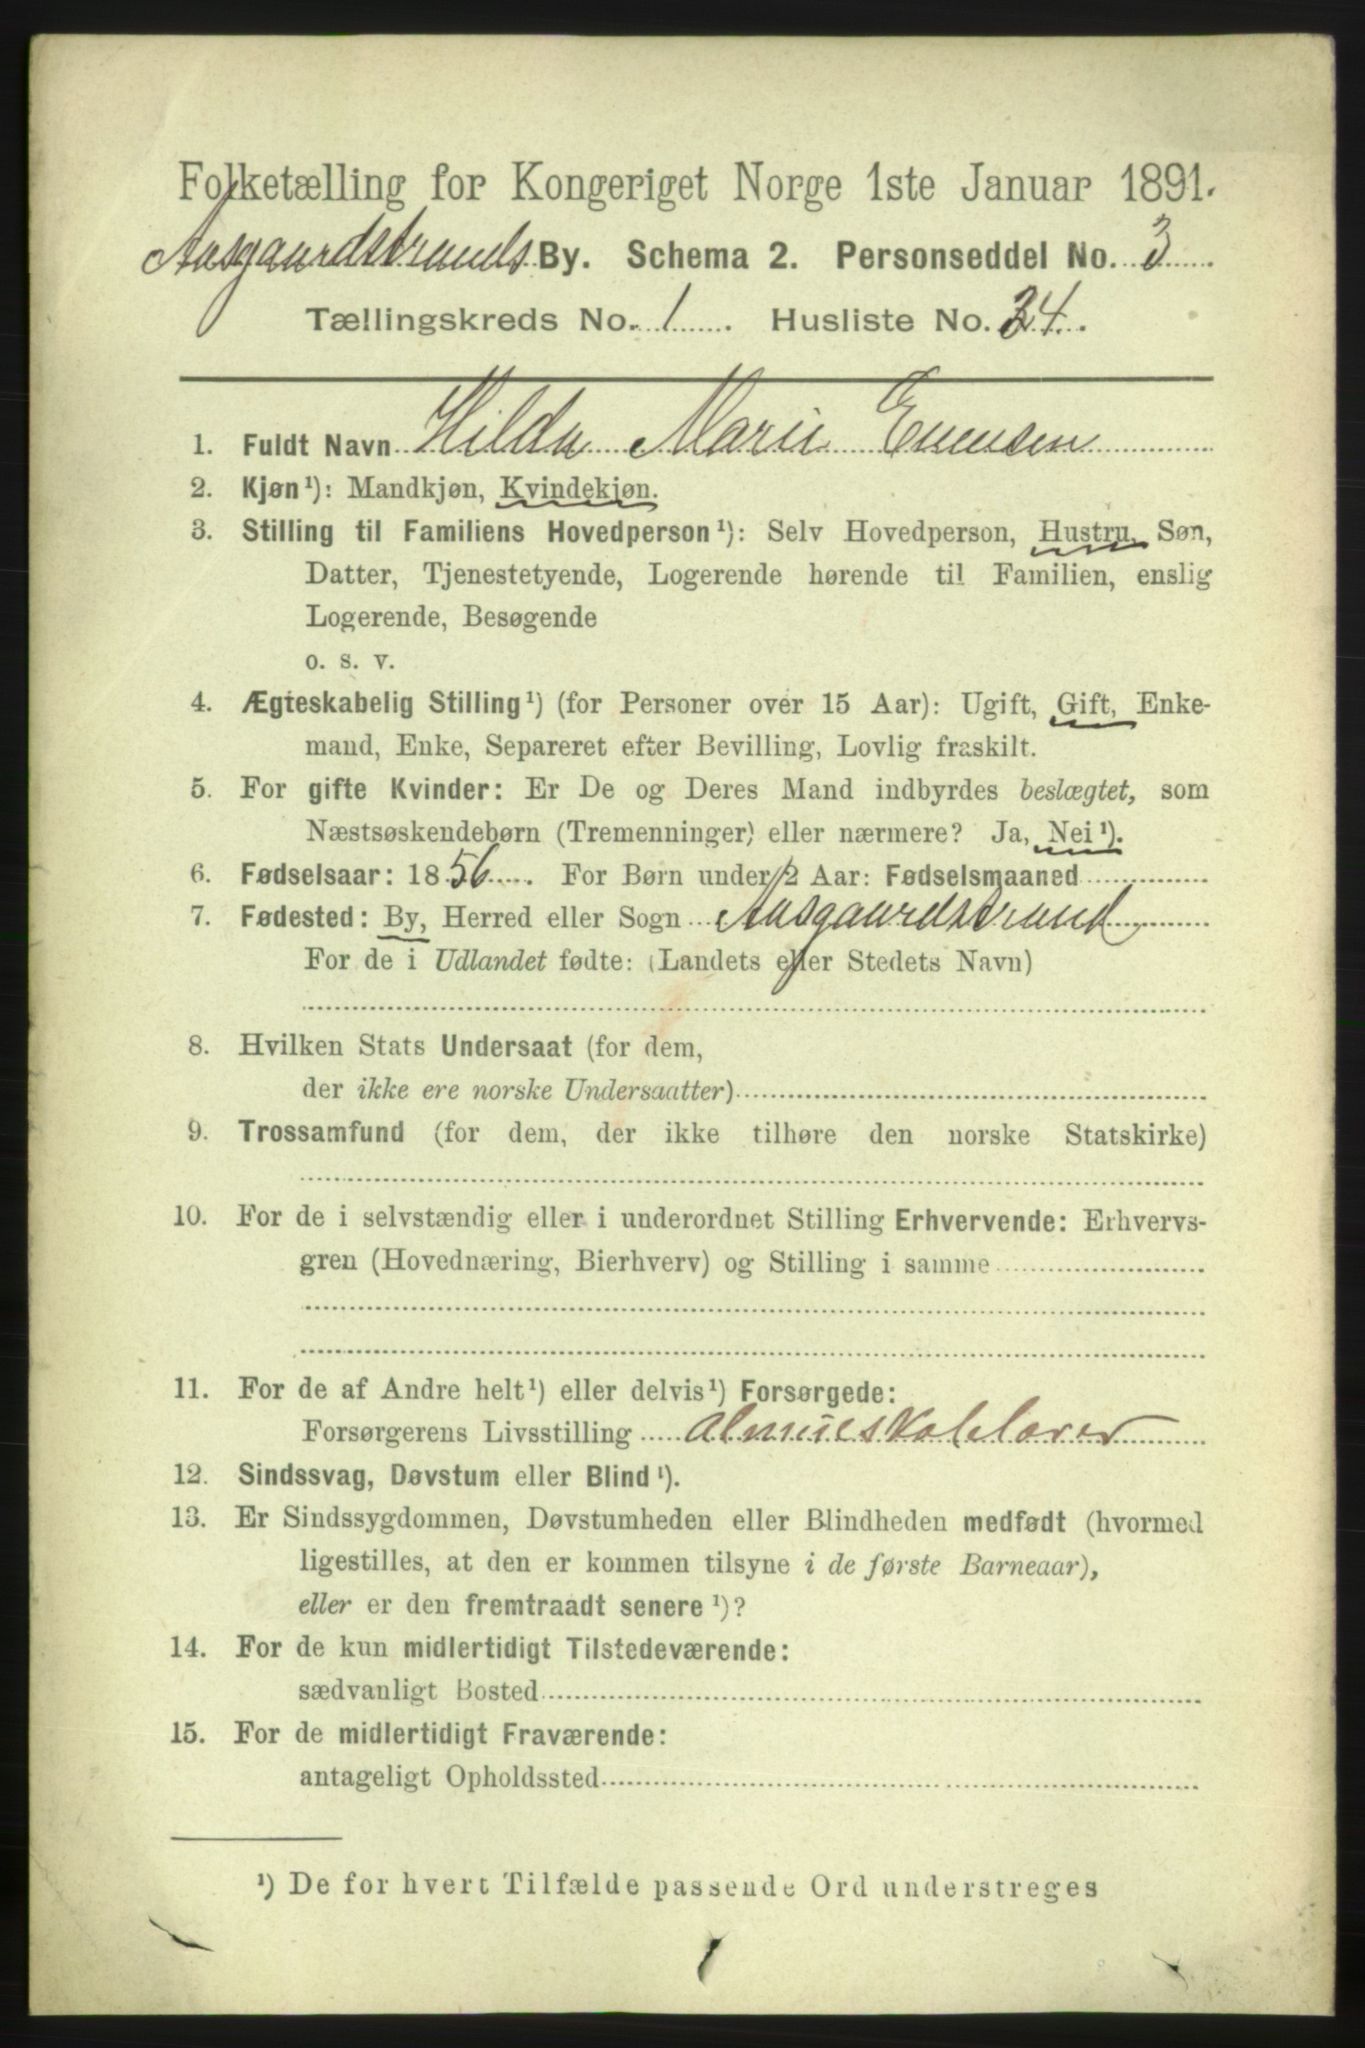 Folketælling for Kongeriget Norge 1ste Januar 1891.
Aasgaardstrands By. Schema 2. Personseddel No. 3
Tællingskreds No. 1. Husliste No. 34.
1. Fuldt Navn Hilda Marie Evensen
2. Kjøn¹): Mandkjøn, Kvindekjøn.
3. Stilling til Familiens Hovedperson¹): Selv Hovedperson, Hustru, Søn,
Datter, Tjenestetyende, Logerende hørende til Familien, enslig
Logerende, Besøgende
o. s. v.
4. Ægteskabelig Stilling¹) (for Personer over 15 Aar): Ugift, Gift, Enke-
mand, Enke, Separeret efter Bevilling, Lovlig fraskilt.
5. For gifte Kvinder: Er De og Deres Mand indbyrdes beslægtet, som
Næstsøskendebørn (Tremenninger) eller nærmere? Ja, Nei¹).
6. Fødselsaar: 1856. For Børn under 2 Aar: Fødselsmaaned
7. Fødested: By, Herred eller Sogn Aasgaardstrand
For de i Udlandet fødte: (Landets eller Stedets Navn)
8. Hvilken Stats Undersaat (for dem,
der ikke ere norske Undersaatter)
9. Trossamfund (for dem, der ikke tilhøre den norske Statskirke)
10. For de i selvstændig eller i underordnet Stilling Erhvervende: Erhvervs-
gren (Hovednæring, Bierhverv) og Stilling i samme
11. For de af Andre helt¹) eller delvis¹) Forsørgede:
Forsørgerens Livsstilling almueskolelærer
12. Sindssvag, Døvstum eller Blind¹).
13. Er Sindssygdommen, Døvstumheden eller Blindheden medfødt (hvormed
ligestilles, at den er kommen tilsyne i de første Barneaar),
eller er den fremtraadt senere¹)?
14. For de kun midlertidigt Tilstedeværende:
sædvanligt Bosted
15. For de midlertidigt Fraværende:
antageligt Opholdssted
¹) De for hvert Tilfælde passende Ord understreges